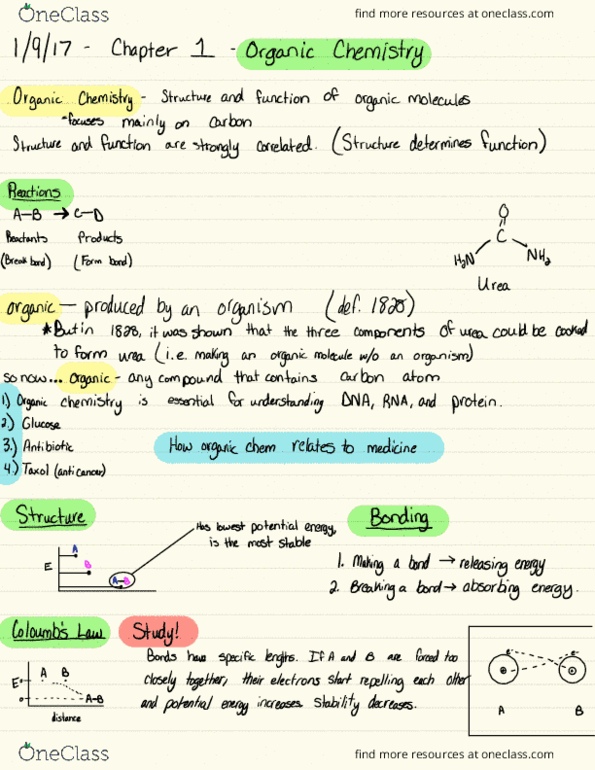 OneClass find more resources at oneclass.com
1/9/17 - Chapter 1 - Organic Chemistry
Organic Chemistry - Structure and function of organic molecules
-focuses mainly on Carbon
Structure and function are strongly corelated. (Structure determines function)
Reactions
A-B → C-D
Reactants Products
(Break bond) (Form bond)
O
C
H₂N NH₂
Urea
organic - produced by an organism (def. 1828)
*But in 1828, it was shown that the three components of urea could be cooked
to form urea (i.e. making an organic molecule w/o an organism)
so now... Organic - any compound that contains carbon atom
1) Organic chemistry is essential for understanding DNA, RNA, and protein.
2) Glucose
3.) Antibiotic
How organic chem relates to medicine
4.) Taxol (anticancer)
Structure
Has lowest potential energy,
is the most stable
Bonding
E A B A-B
1. Making a bond → releasing energy
2. Breaking a bond → absorbing energy.
Coloumb's Law Study!
Bonds have specific lengths. If A and B are forced too
closely together, their electrons start repelling each other
and potential energy increases stability decreases.
E A B
0 A-B
distance
e⁻ e⁻
A B
OneClass find more resources at oneclass.com